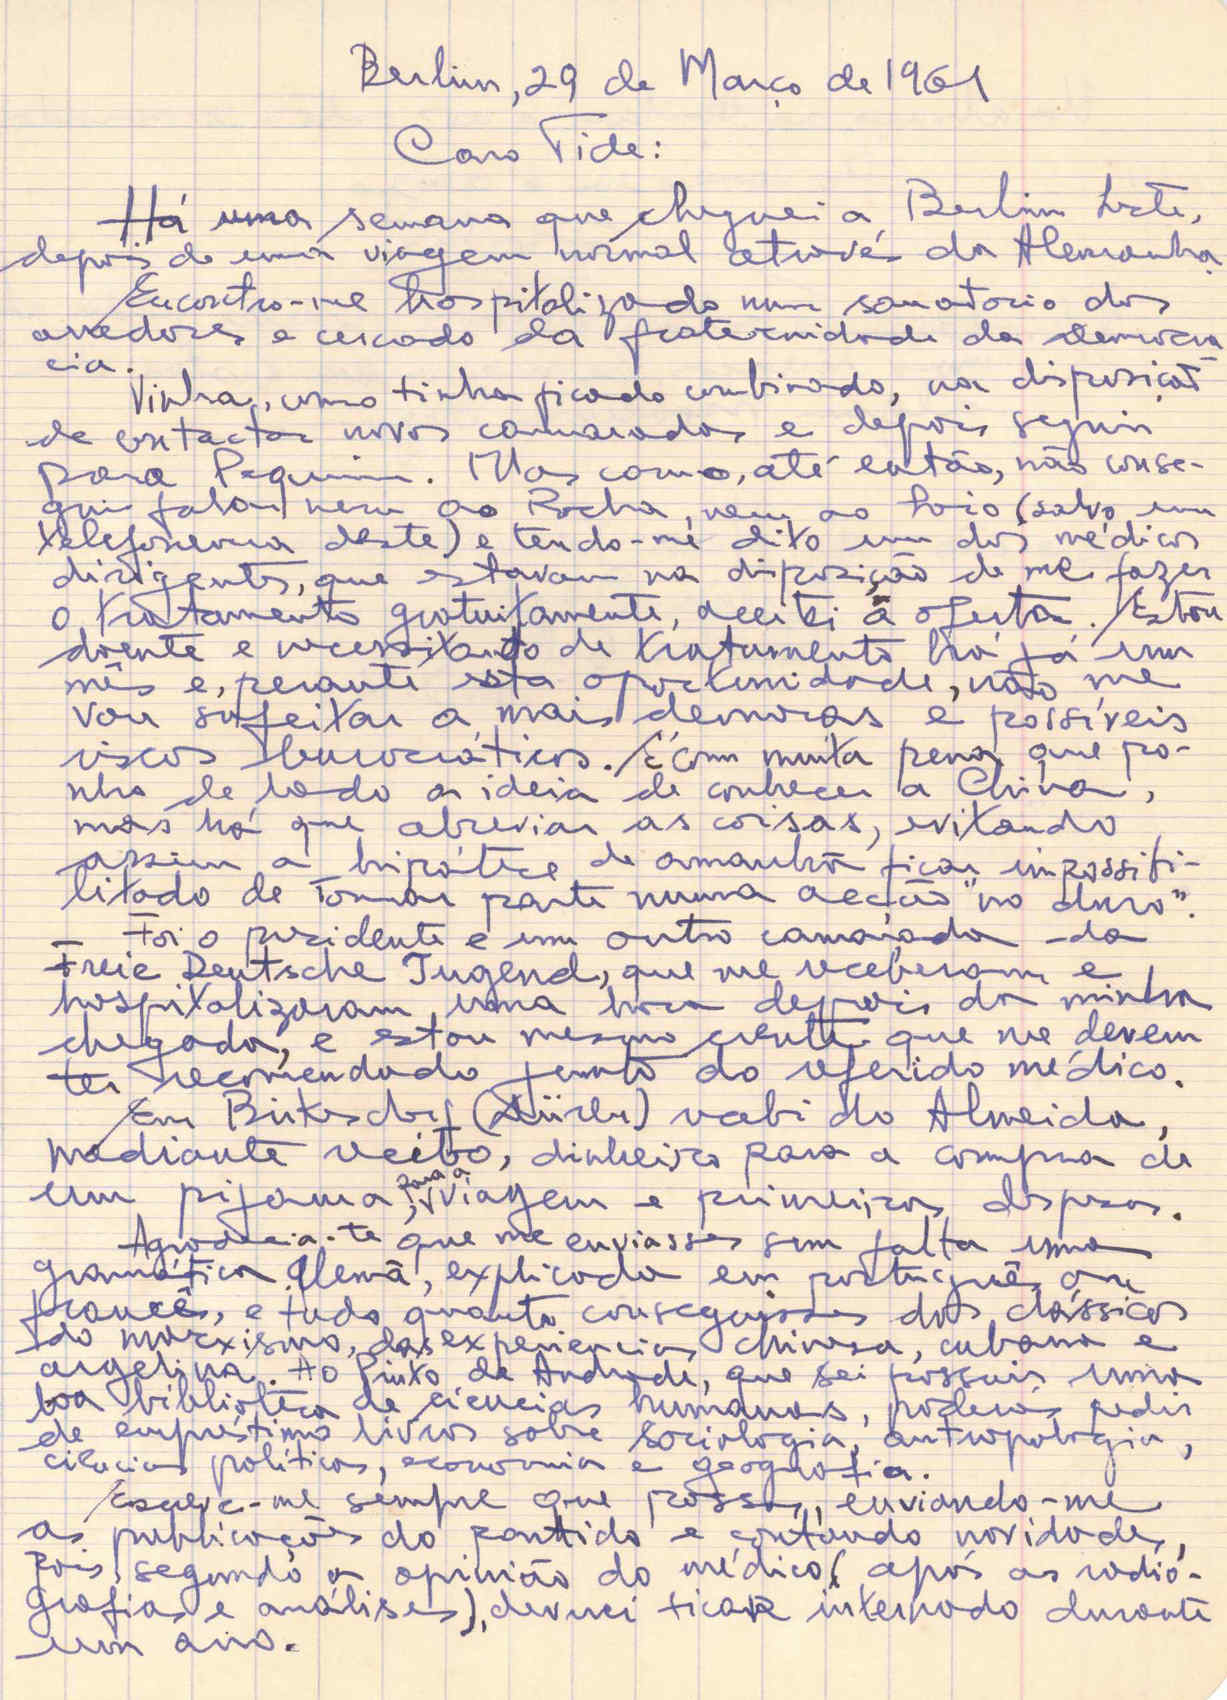 Berlim, 29 de Março de 1961
Caro Tide:
Há uma semana que cheguei a Berlim Leste,
depois de uma viagem normal através da Alemanha.
Encontro-me hospitalizado num sanatorio dos
arredores e cercado da fraternidade da democra
cia.
Vinha, como tinha ficado combinado, na disposição
de contactar novos camaradas e depois seguir
para Pequim. Mas como, até então, não conse-
gui falar nem ao Rocha, nem ao (salvo um
telefonema deste) e tendo-me dito um dos médicos
dirigentes, que estavam na disposição de me fazer
o tratamento gratuitamente, aceitei a oferta. Estou
doente e necessitando de tratamento há já um
mês e, perante esta oportunidade, não me
vou sujeitar a mais demoras e possíveis
riscos burocráticos. É com muita pena que po-
nho de lado a ideia de conhecer a China,
mas há que abreviar as coisas, evitando
assim a hipótese de amanhã ficar impossibi-
litado de tomar parte numa acção "no duro".
Foi o presidente e um outro camarada - da
Freie Deutsche Jugend, que me receberam e
hospitalizaram uma hora depois da minha
chegada, e estou mesmo crente que me devem
ter recomendado junto do referido médico.
Em (Düren) recebi do Almeida,
mediante recibo, dinheiro para a compra de
um pijama, para a viagem e primeiras despesas.
Agradecia-te que me enviasses sem falta uma
gramática alemã, explicada em português ou
francês, e tudo quanto conseguisses dos clássicos
do marxismo, das experiencias chinesa, cubana e
argelina. Ao Pinto de Andrade, que sei possuir uma
boa biblioteca de ciencias humanas, poderás pedir
de emprestimo livros sobre sociologia, antropologia,
ciencias políticas, economia e geografia.
Escreve-me sempre que possas, enviando-me
as publicações do partido e contando novidades,
pois, segundo a opinião do médico (após as radio-
grafias e análises), deverei ficar internado durante
um ano.